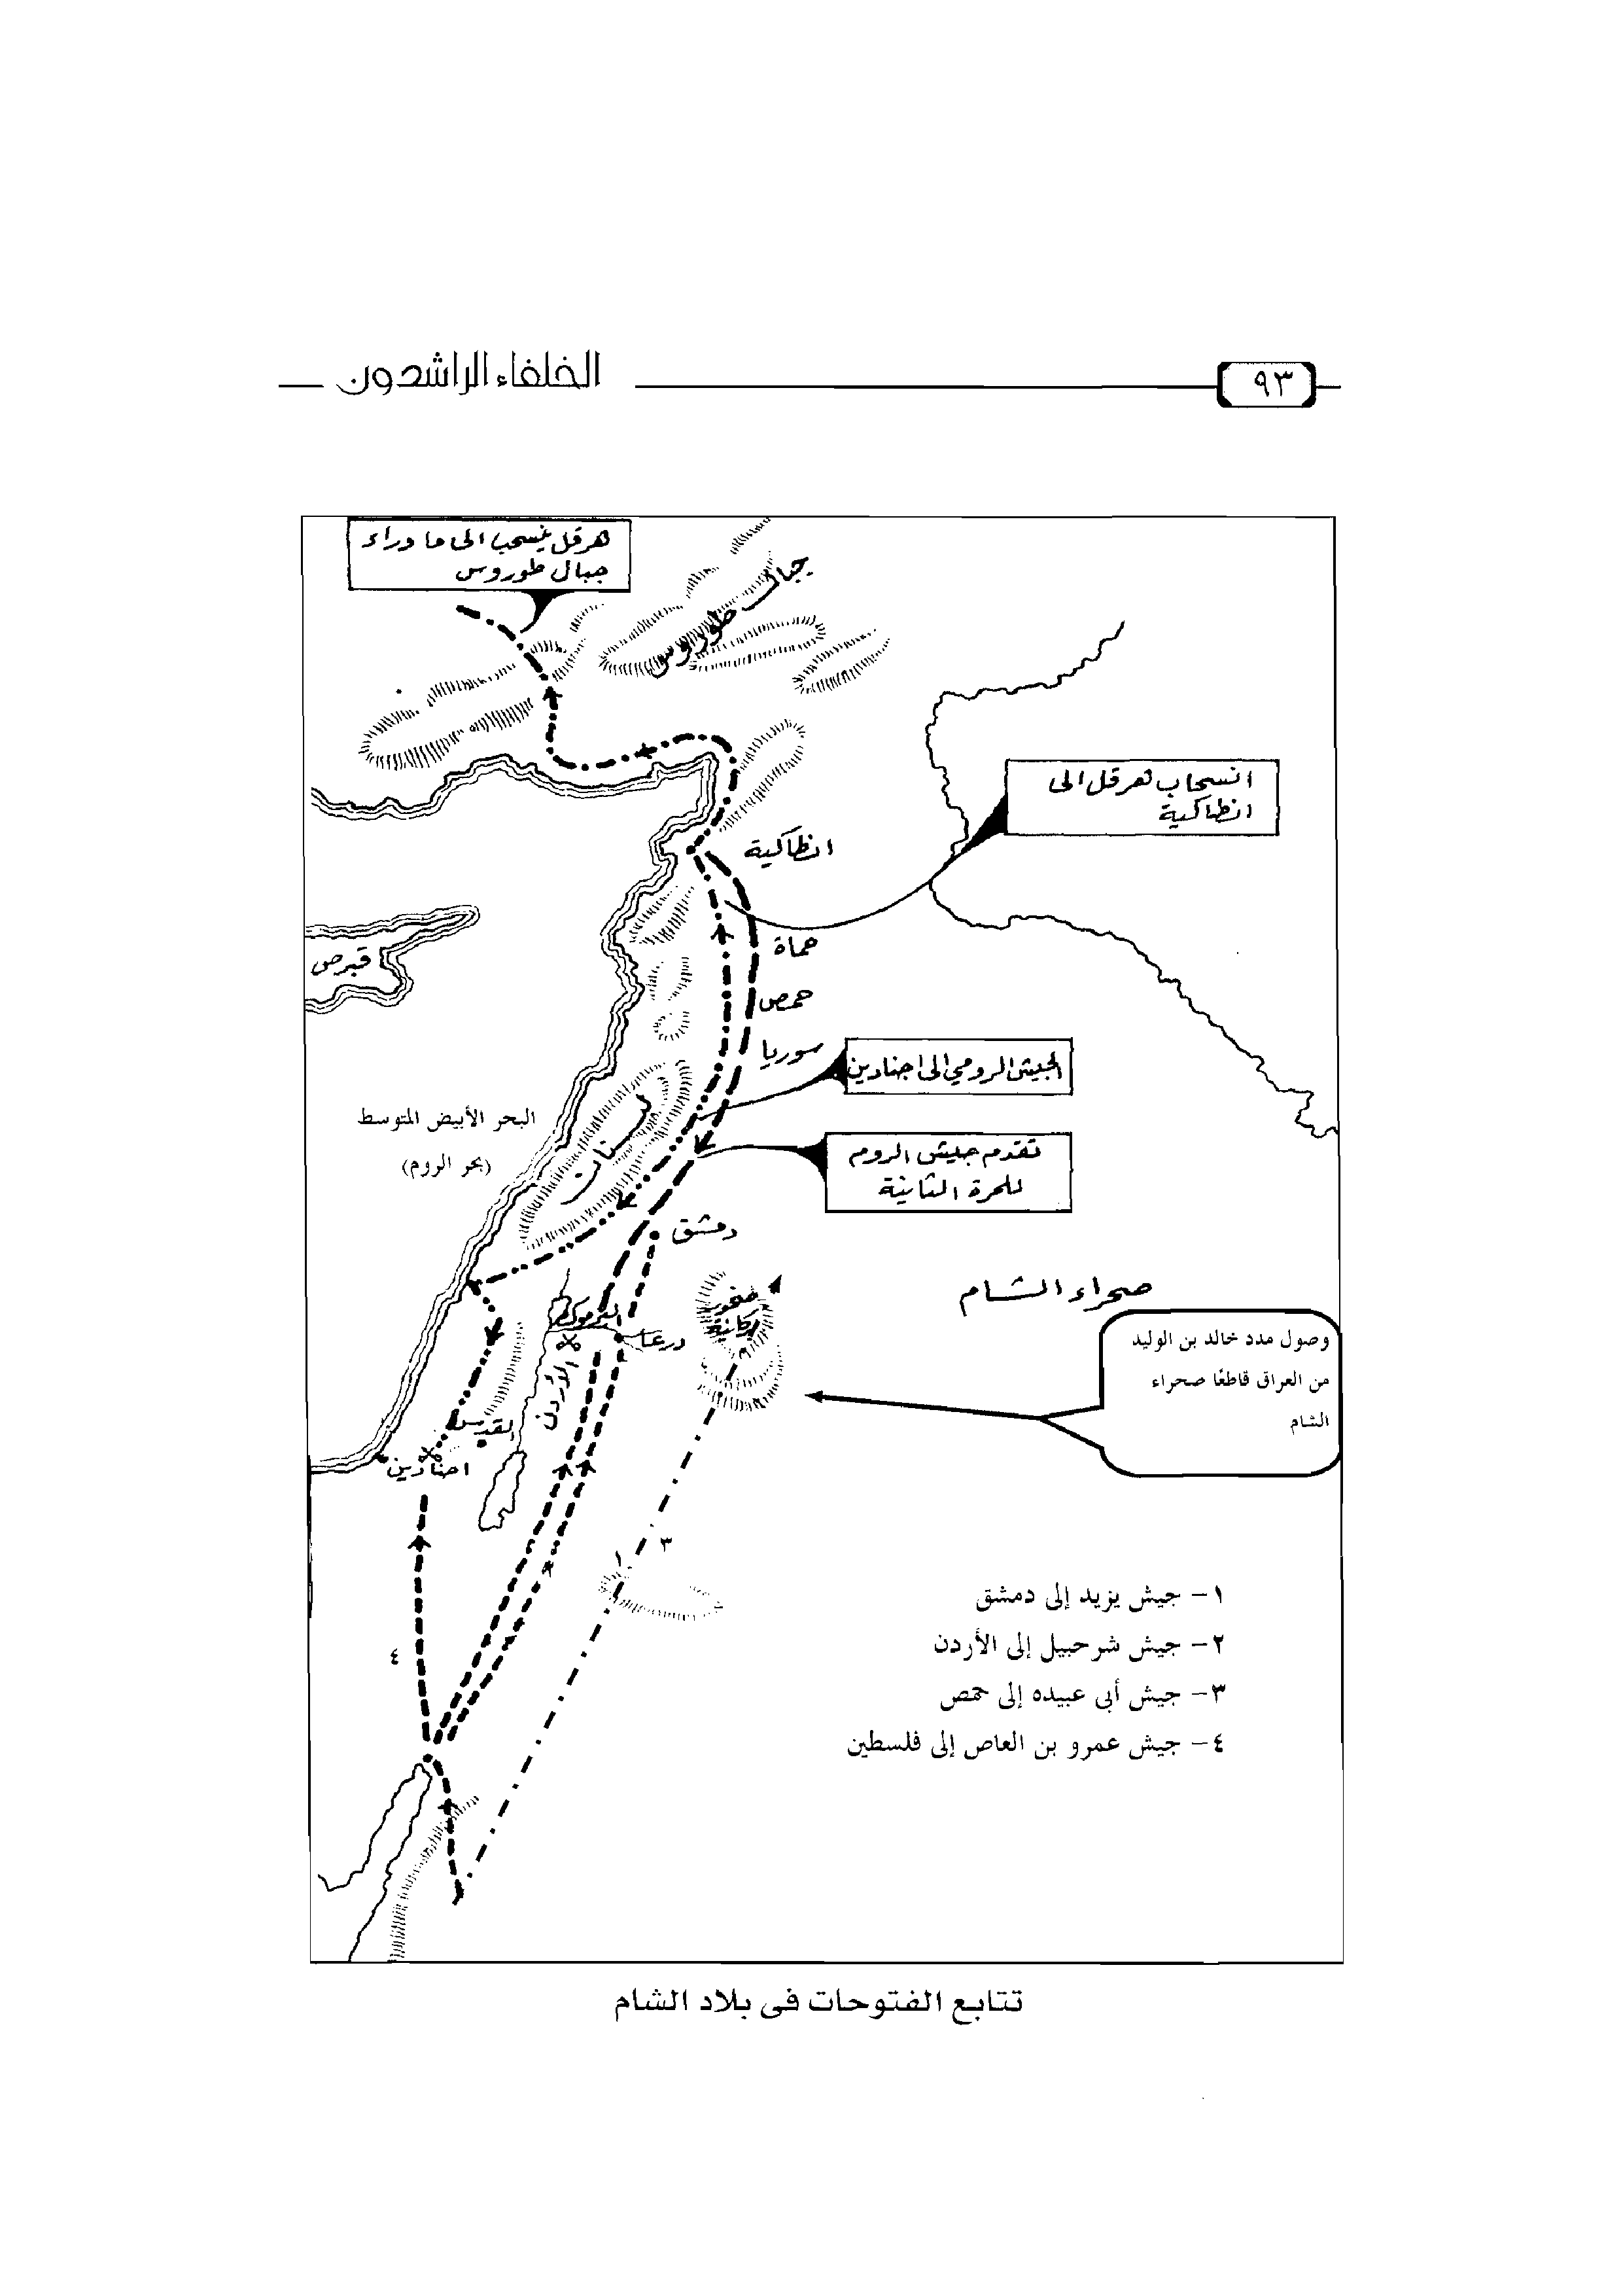 ٩٣
الخلفاء الراشدون
هرقل ينسحب الى ما وراء
جبال طوروس
جبال طوروس
انسحاب هرقل الى
انطاكية
انطاكية
حماة
قبرص
حمص
سوريا
الجيش الرومي الى اجنادين
البحر الأبيض المتوسط
(بحر الروم)
لبنان
تقدم جيش الروم
للمرة الثانية
دمشق
صحراء الشام
اليرموك
درعا
وصول مدد خالد بن الوليد
من العراق قاطعًا صحراء
الشام
الأردن
القدس
اجنادين
١
٣
١- جيش يزيد إلى دمشق
٢- جيش شرحبيل إلى الأردن
٣- جيش أبى عبيده إلى حمص
٤- جيش عمرو بن العاص إلى فلسطين
٤
تتابع الفتوحات فى بلاد الشام